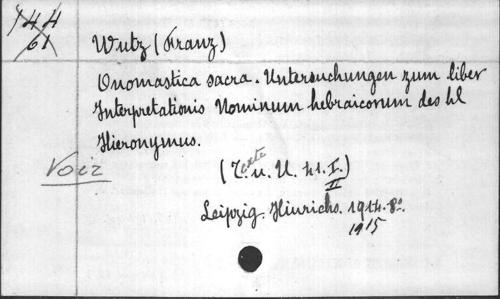 144
61
Wutz (Franz)
Onomastica sacra. Untersuchungen zum liber
Interpretationis Nominum hebraicorum des hl
Hieronymus.
Voir
(Texte u. U. 41. I.)
II
Leipzig. Hinrichs. 1914. 8o.
1915